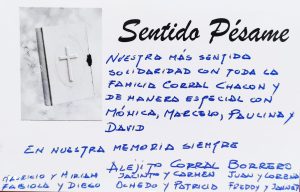 Sentido Pésame
NUESTRA MÁS SENTIDA
SOLIDARIDAD CON TODA LA
FAMILIA CORRAL CHACON Y
DE MANERA ESPECIAL CON
MÓNICA, MARCELO, PAULINA Y
DAVID
EN NUESTRA MEMORIA SIEMPRE
ALEJITO CORRAL BORRERO
MAURICIO Y MIRIAM JACINTO Y CARMEN JUAN Y LORENA
FABIOLA Y DIEGO OLMEDO Y PATRICIA FREDDY Y